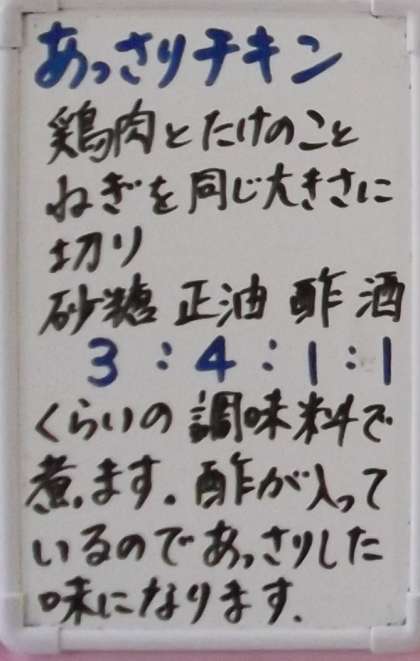 あっさりチキン
鶏肉とたけのこと
ねぎを同じ大きさに
切り
砂糖 正油 酢 酒
3:4:1:1
くらいの調味料で
煮ます。酢が入って
いるのであっさりした
味になります.